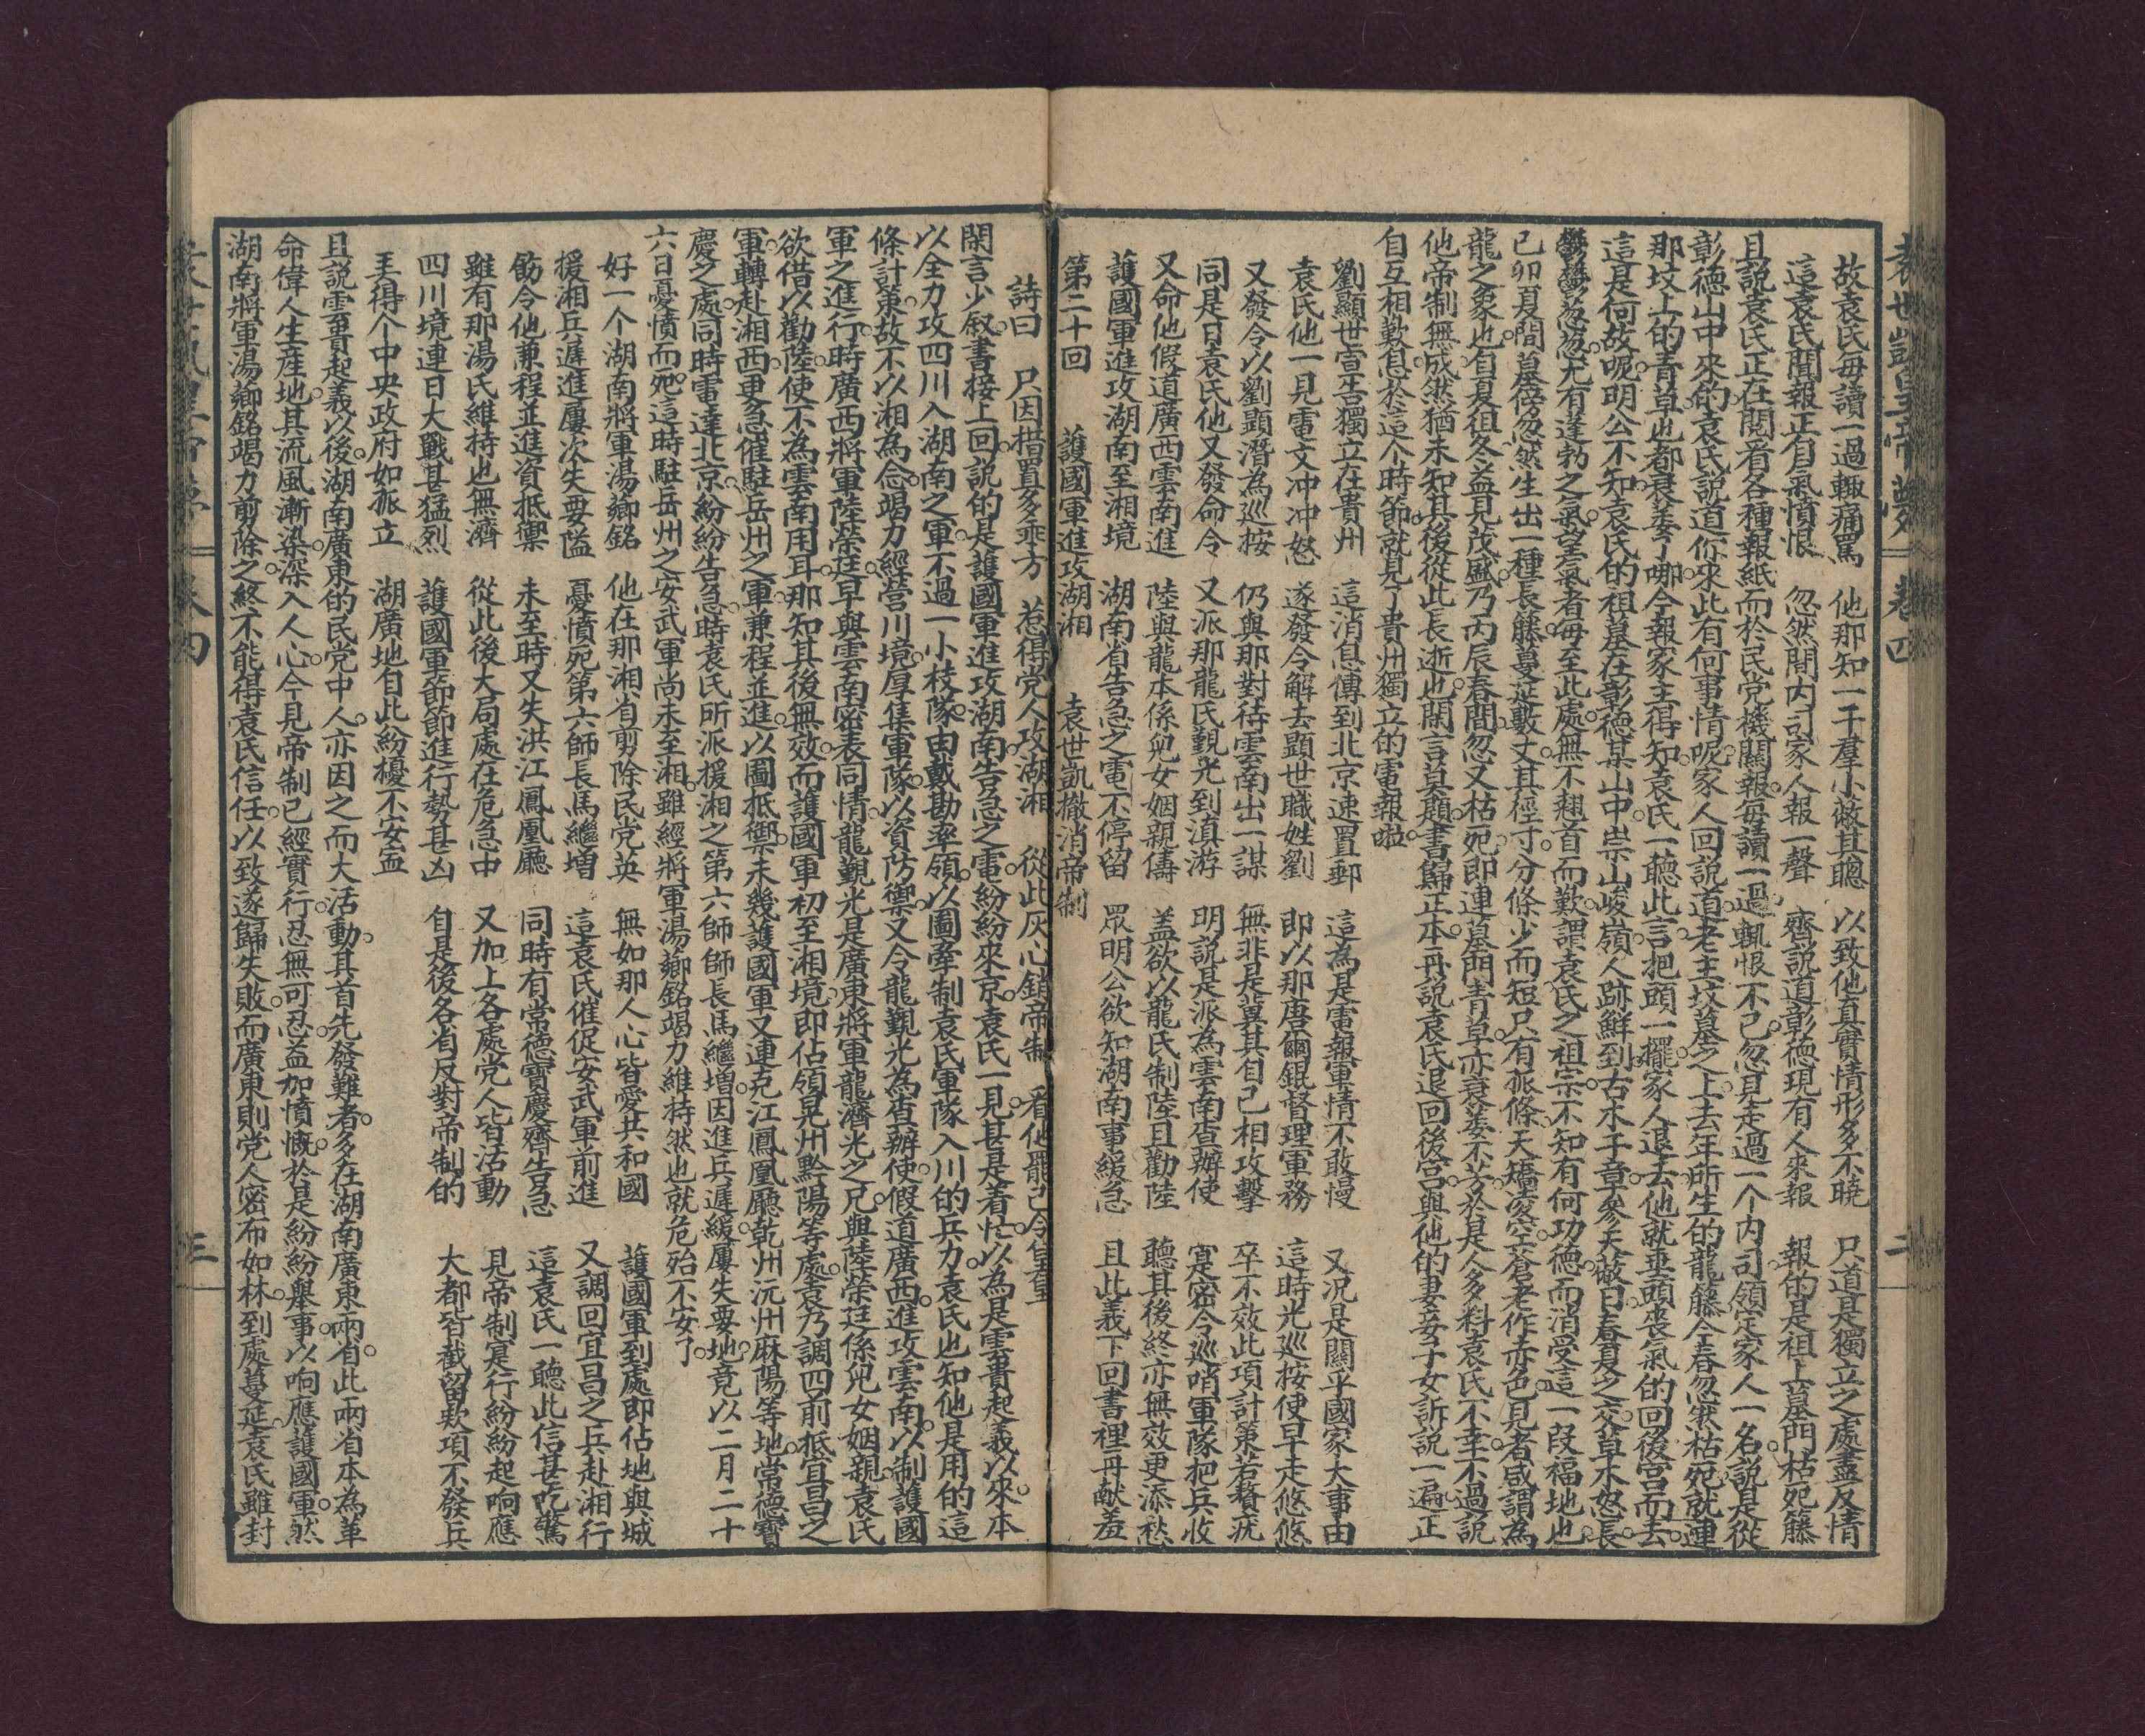 袁世凱皇帝夢 卷四 二
故袁氏每讀一過輙痛罵 他那知一干羣小蔽其聰 以致他真實情形多不曉 只道是獨立之處盡反情
這袁氏聞報正自氣憤恨 忽然閙內司家人報一聲 齊說道彰德現有人來報 報的是祖上墓門枯死籐
且說袁氏正在閱看各種報紙而於民党機關報每讀一過輒恨不已忽見走過一个內司領定家人一名說是從
彰德山中來的袁氏說道你來此有何事情呢家人回說道老主坟墓之上去年所生的龍籐今春忽然枯死就連
那坟上的青草也都衰萎了哪今報家主得知袁氏一聽此言把頭一擺家人退去他就垂頭喪氣的回後宮而去
這是何故呢明公不知袁氏的祖墓在彰德某山中崇山峻嶺人跡鮮到古木千章參天蔽日春夏之交草木怒長
鬱鬱葱葱尤有蓬勃之氣望氣者每至此處無不翹首而歎謂袁氏之祖宗不知有何功德而消受這一段福地也
己卯夏間墓傍忽然生出一種長籐蔓延數丈其徑寸分條少而短只有孤條天矯凌空蒼老作赤色見者咸謂為
龍之象也自夏徂冬益見茂盛乃丙辰春間忽又枯死即連墓門青草亦衰萎不芳於是人多料袁氏不幸不過說
他帝制無成然猶未知其後從此長逝也閑言莫題書歸正本再說袁氏退回後宮與他的妻妾子女訴說一遍正
自互相歎息於這个時節就見了貴州獨立的電報啦
劉顯世宣告獨立在貴州 這消息傳到北京速置郵 這為是電報軍情不敢慢 又況是關乎國家大事由
袁氏他一見電文冲冲怒 遂發令解去顯世職姓劉 即以那唐爾錕督理軍務 這時光巡按使早走悠悠
又發令以劉顯潛為巡按 仍與那對待雲南出一謀 無非是冀其自己相攻擊 卒不效此項計策若贅疣
同是日袁氏他又發命令 又派那龍氏覲光到滇游 明說是派為雲南查辦使 寔密令巡哨軍隊把兵收
又命他假道廣西雲南進 陸與龍本係兒女姻親儔 盖欲以龍氏制陸且勸陸 聽其後終亦無效更添愁
護國軍進攻湖南至湘境 湖南省告急之電不停留 眾明公欲知湖南事緩急 且此義下回書裡再献羞
第二十回 護國軍進攻湖湘 袁世凱撤消帝制
詩曰 只因措置多乖方 惹得党人攻湖湘 從此灰心銷帝制 看他罷己令皇皇
閑言少叙書接上回說的是護國軍進攻湖南告急之電紛紛來京袁氏一見甚是着忙以為是雲貴起義以來本
以全力攻四川入湖南之軍不過一小枝隊由戴勘率領以圖牽制袁氏軍隊入川的兵力袁氏也知他是用的這
條計策故不以湘為念竭力經營川境厚集軍隊以資防禦又令龍覲光為查辦使假道廣西進攻雲南以制護國
軍之進行時廣西將軍陸榮廷早與雲南密表同情龍覲光是廣東將軍龍濟光之兄與陸榮廷係兒女姻親袁氏
欲借以勸陸使不為雲南用耳那知其後無效而護國軍初至湘境即佔領晃州黔陽等處袁乃調四前抵宜昌之
軍轉赴湘西更急催駐岳州之軍兼程並進以圖抵禦未幾護國軍又連克江鳳凰廳乾州沅州麻陽等地常德寶
慶之處同時電達北京紛紛告急時袁氏所派援湘之第六師師長馬繼增因進兵遲緩屢失要地竟以二月二十
六日憂憤而死這時駐岳州之安武軍尚未至湘雖經將軍湯薌銘竭力維持然也就危殆不安了
好一个湖南將軍湯薌銘 他在那湘省剪除民党英 無如那人心皆愛共和國 護國軍到處即佔地與城
援湘兵遲進屢次失要隘 憂憤死第六師長馬繼增 這袁氏催促安武軍前進 又調回宜昌之兵赴湘行
飭令他兼程並進資抵禦 未至時又失洪江鳳凰廳 同時有常德寶慶齊告急 這袁氏一聽此信甚吃驚
雖有那湯氏維持也無濟 從此後大局處在危急中 又加上各處党人皆活動 見帝制寔行紛紛起响應
四川境連日大戰甚猛烈 護國軍節節進行勢甚凶 自是後各省反對帝制的 大都皆截留欵項不發兵
王得个中央政府如孤立 湖廣地自此紛擾不安寍
且說雲貴起義以後湖南廣東的民党中人亦因之而大活動其首先發難者多在湖南廣東兩省此兩省本為革
命偉人生産地其流風漸染深入人心今見帝制已經實行忍無可忍益加憤慨於是紛紛舉事以响應護國軍然
湖南將軍湯薌銘竭力剪除之終不能得袁氏信任以致遂歸失敗而廣東則党人密布如林到處蔓延袁氏雖封
卷四 三